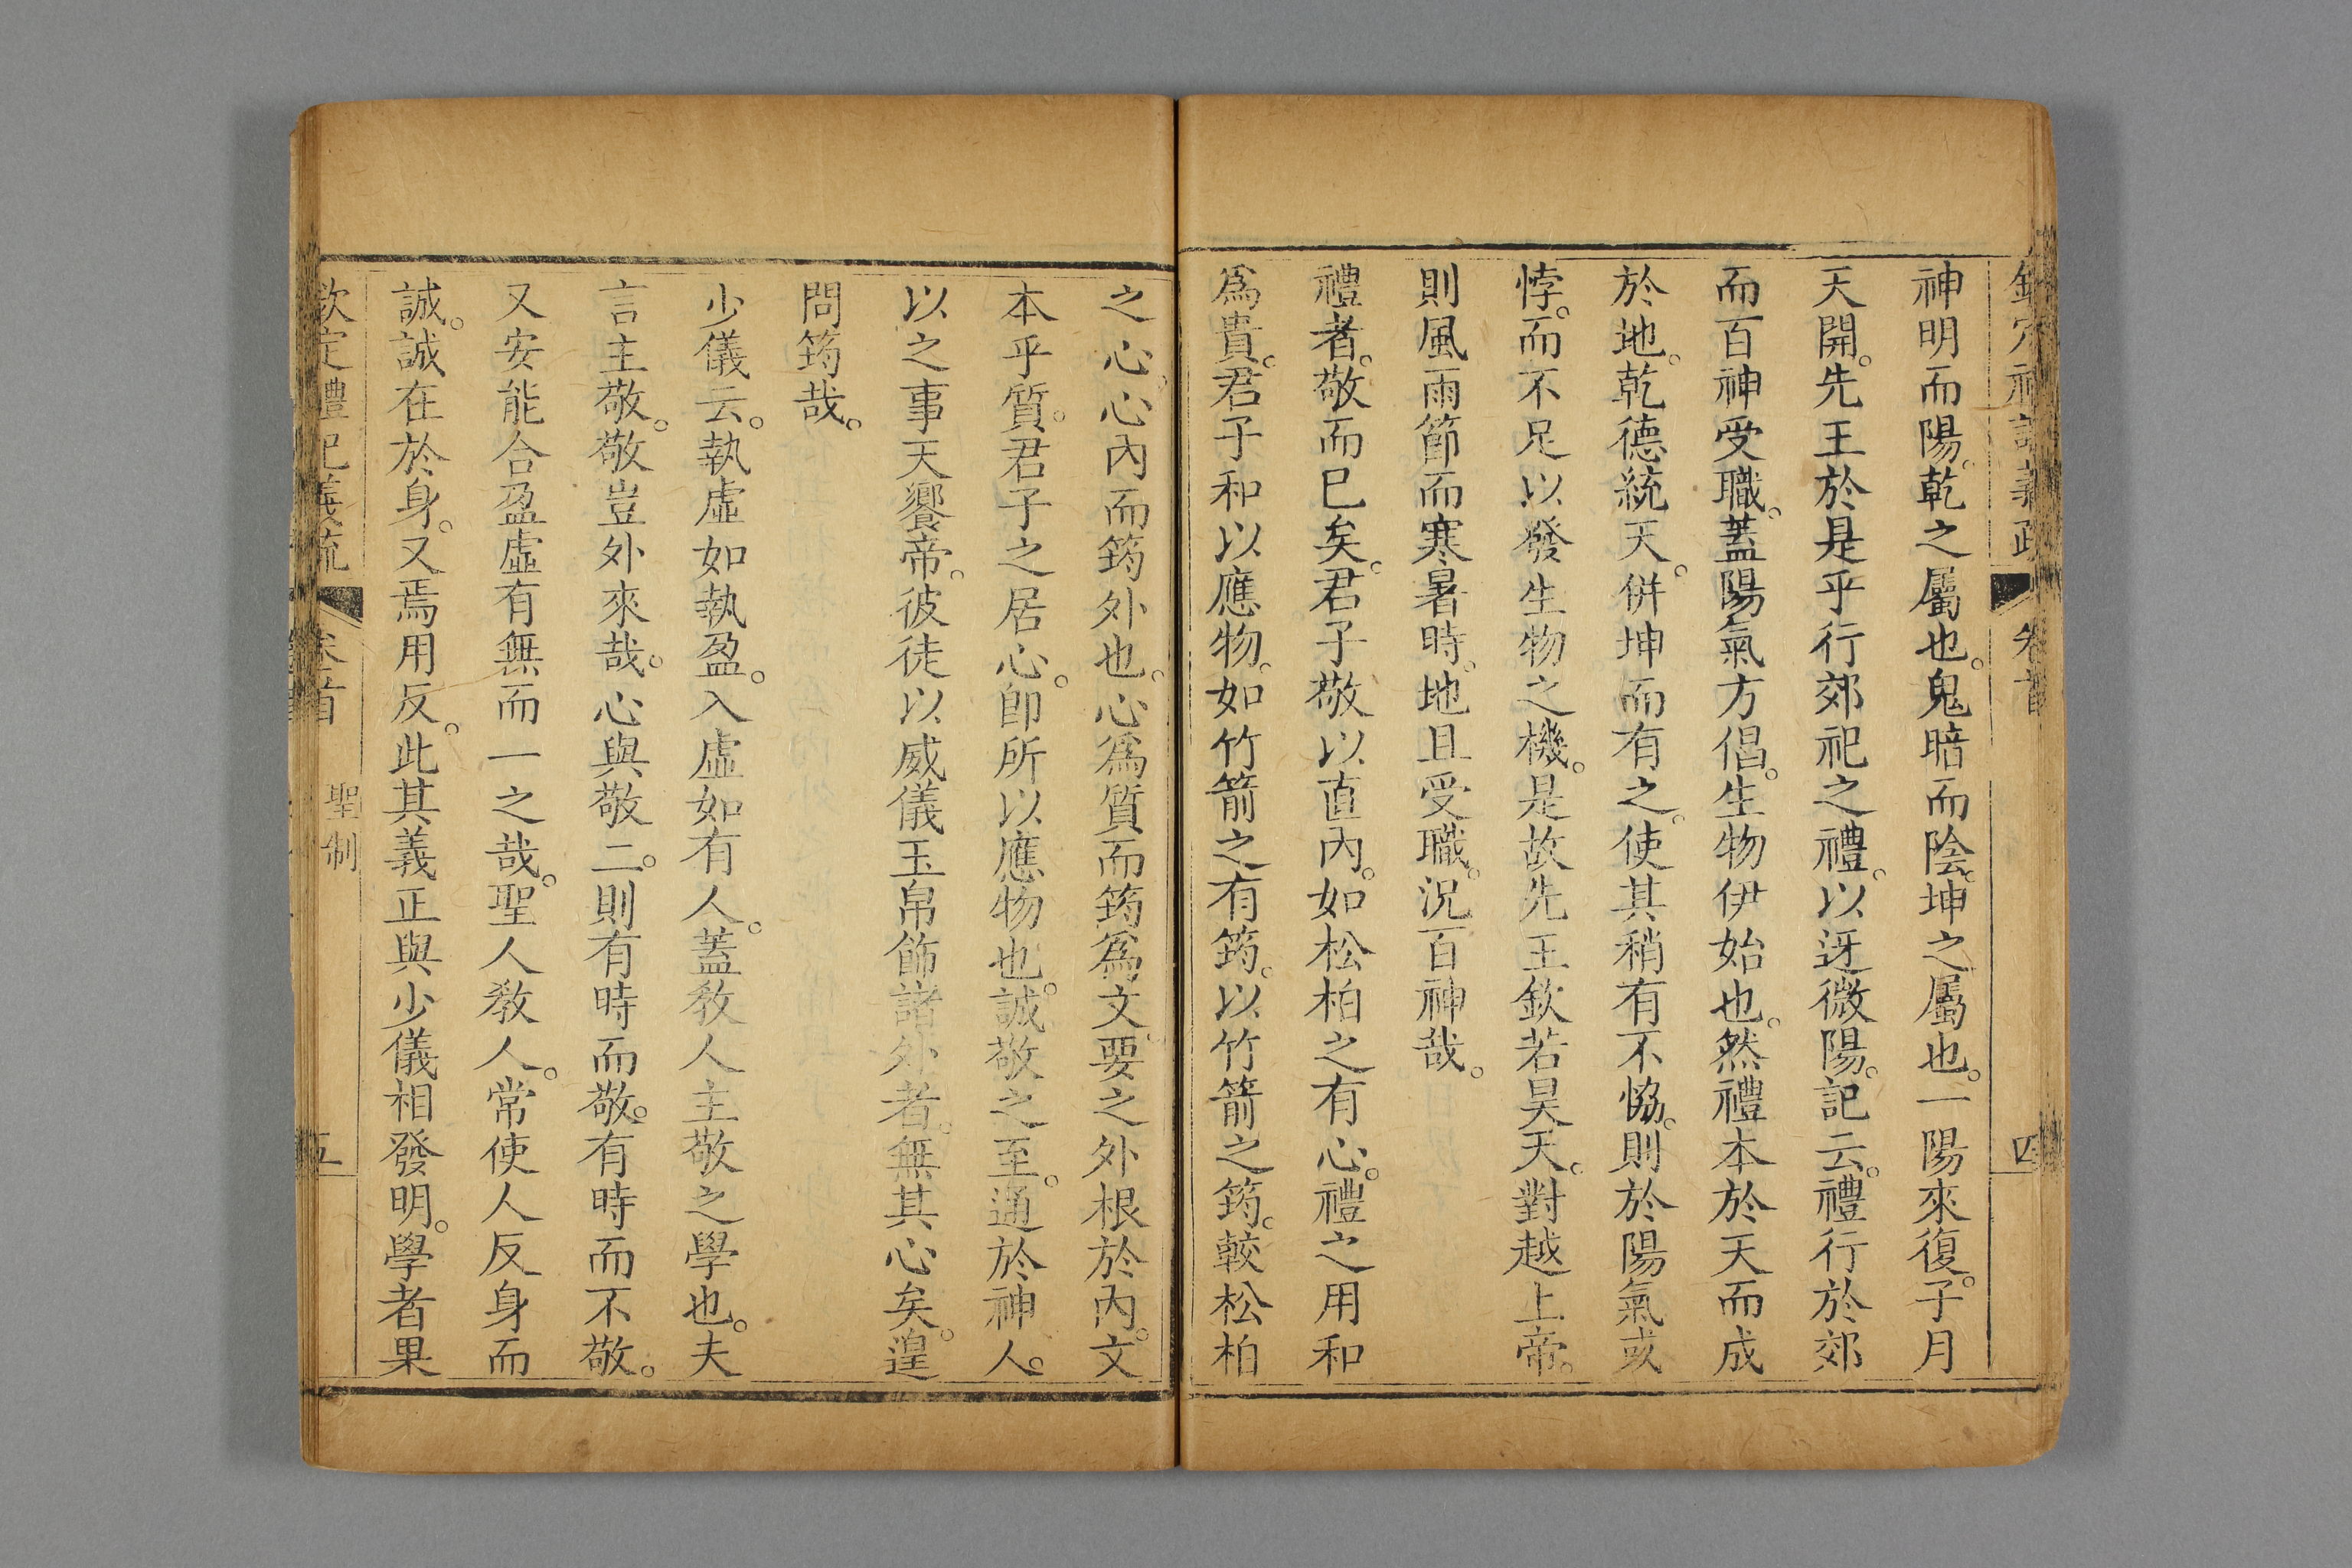 神明而陽。乾之屬也。鬼暗而陰。坤之屬也。一陽來復。子月
天開。先王於是乎行郊祀之禮。以迓微陽。記云。禮行於郊
而百神受職。蓋陽氣方倡。生物伊始也。然禮本於天而成
於地。乾德統天。併坤而有之。使其稍有不恊。則於陽氣或
悖。而不足以發生物之機。是故先王欽若昊天。對越上帝。
則風雨節而寒暑時。地且受職。況百神哉。
禮者。敬而已矣。君子敬以直內。如松柏之有心。禮之用和
爲貴。君子和以應物。如竹箭之有筠。以竹箭之筠。較松柏
之心。心內而筠外也。心爲質而筠爲文。要之外根於內。文
本乎質。君子之居心。卽所以應物也。誠敬之至。通於神人。
以之事天饗帝。彼徒以威儀玉帛飾諸外者。無其心矣。遑
問筠哉。
少儀云。執虛如執盈。入虛如有人。蓋敎人主敬之學也。夫
言主敬。敬豈外來哉。心與敬二。則有時而敬。有時而不敬。
又安能合盈虛有無而一之哉。聖人敎人。常使人反身而
誠。誠在於身。又焉用反。此其義正與少儀相發明。學者果
欽定禮記義疏 卷首 聖制 五